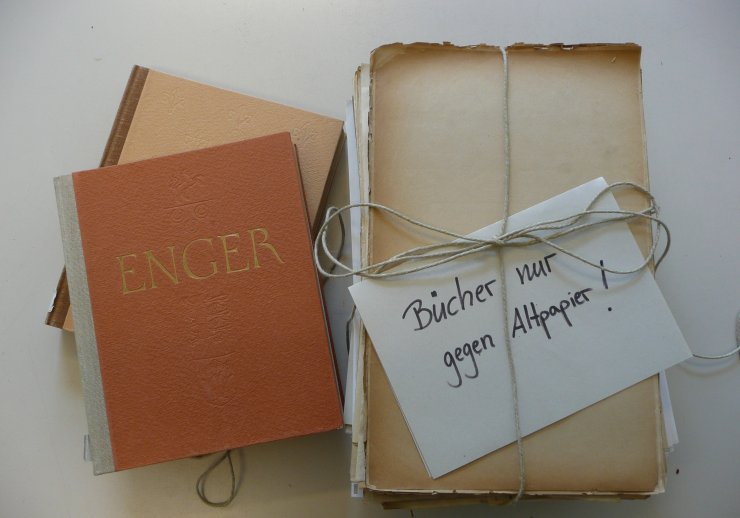 ENGER
Bücher nur
gegen Altpapier!